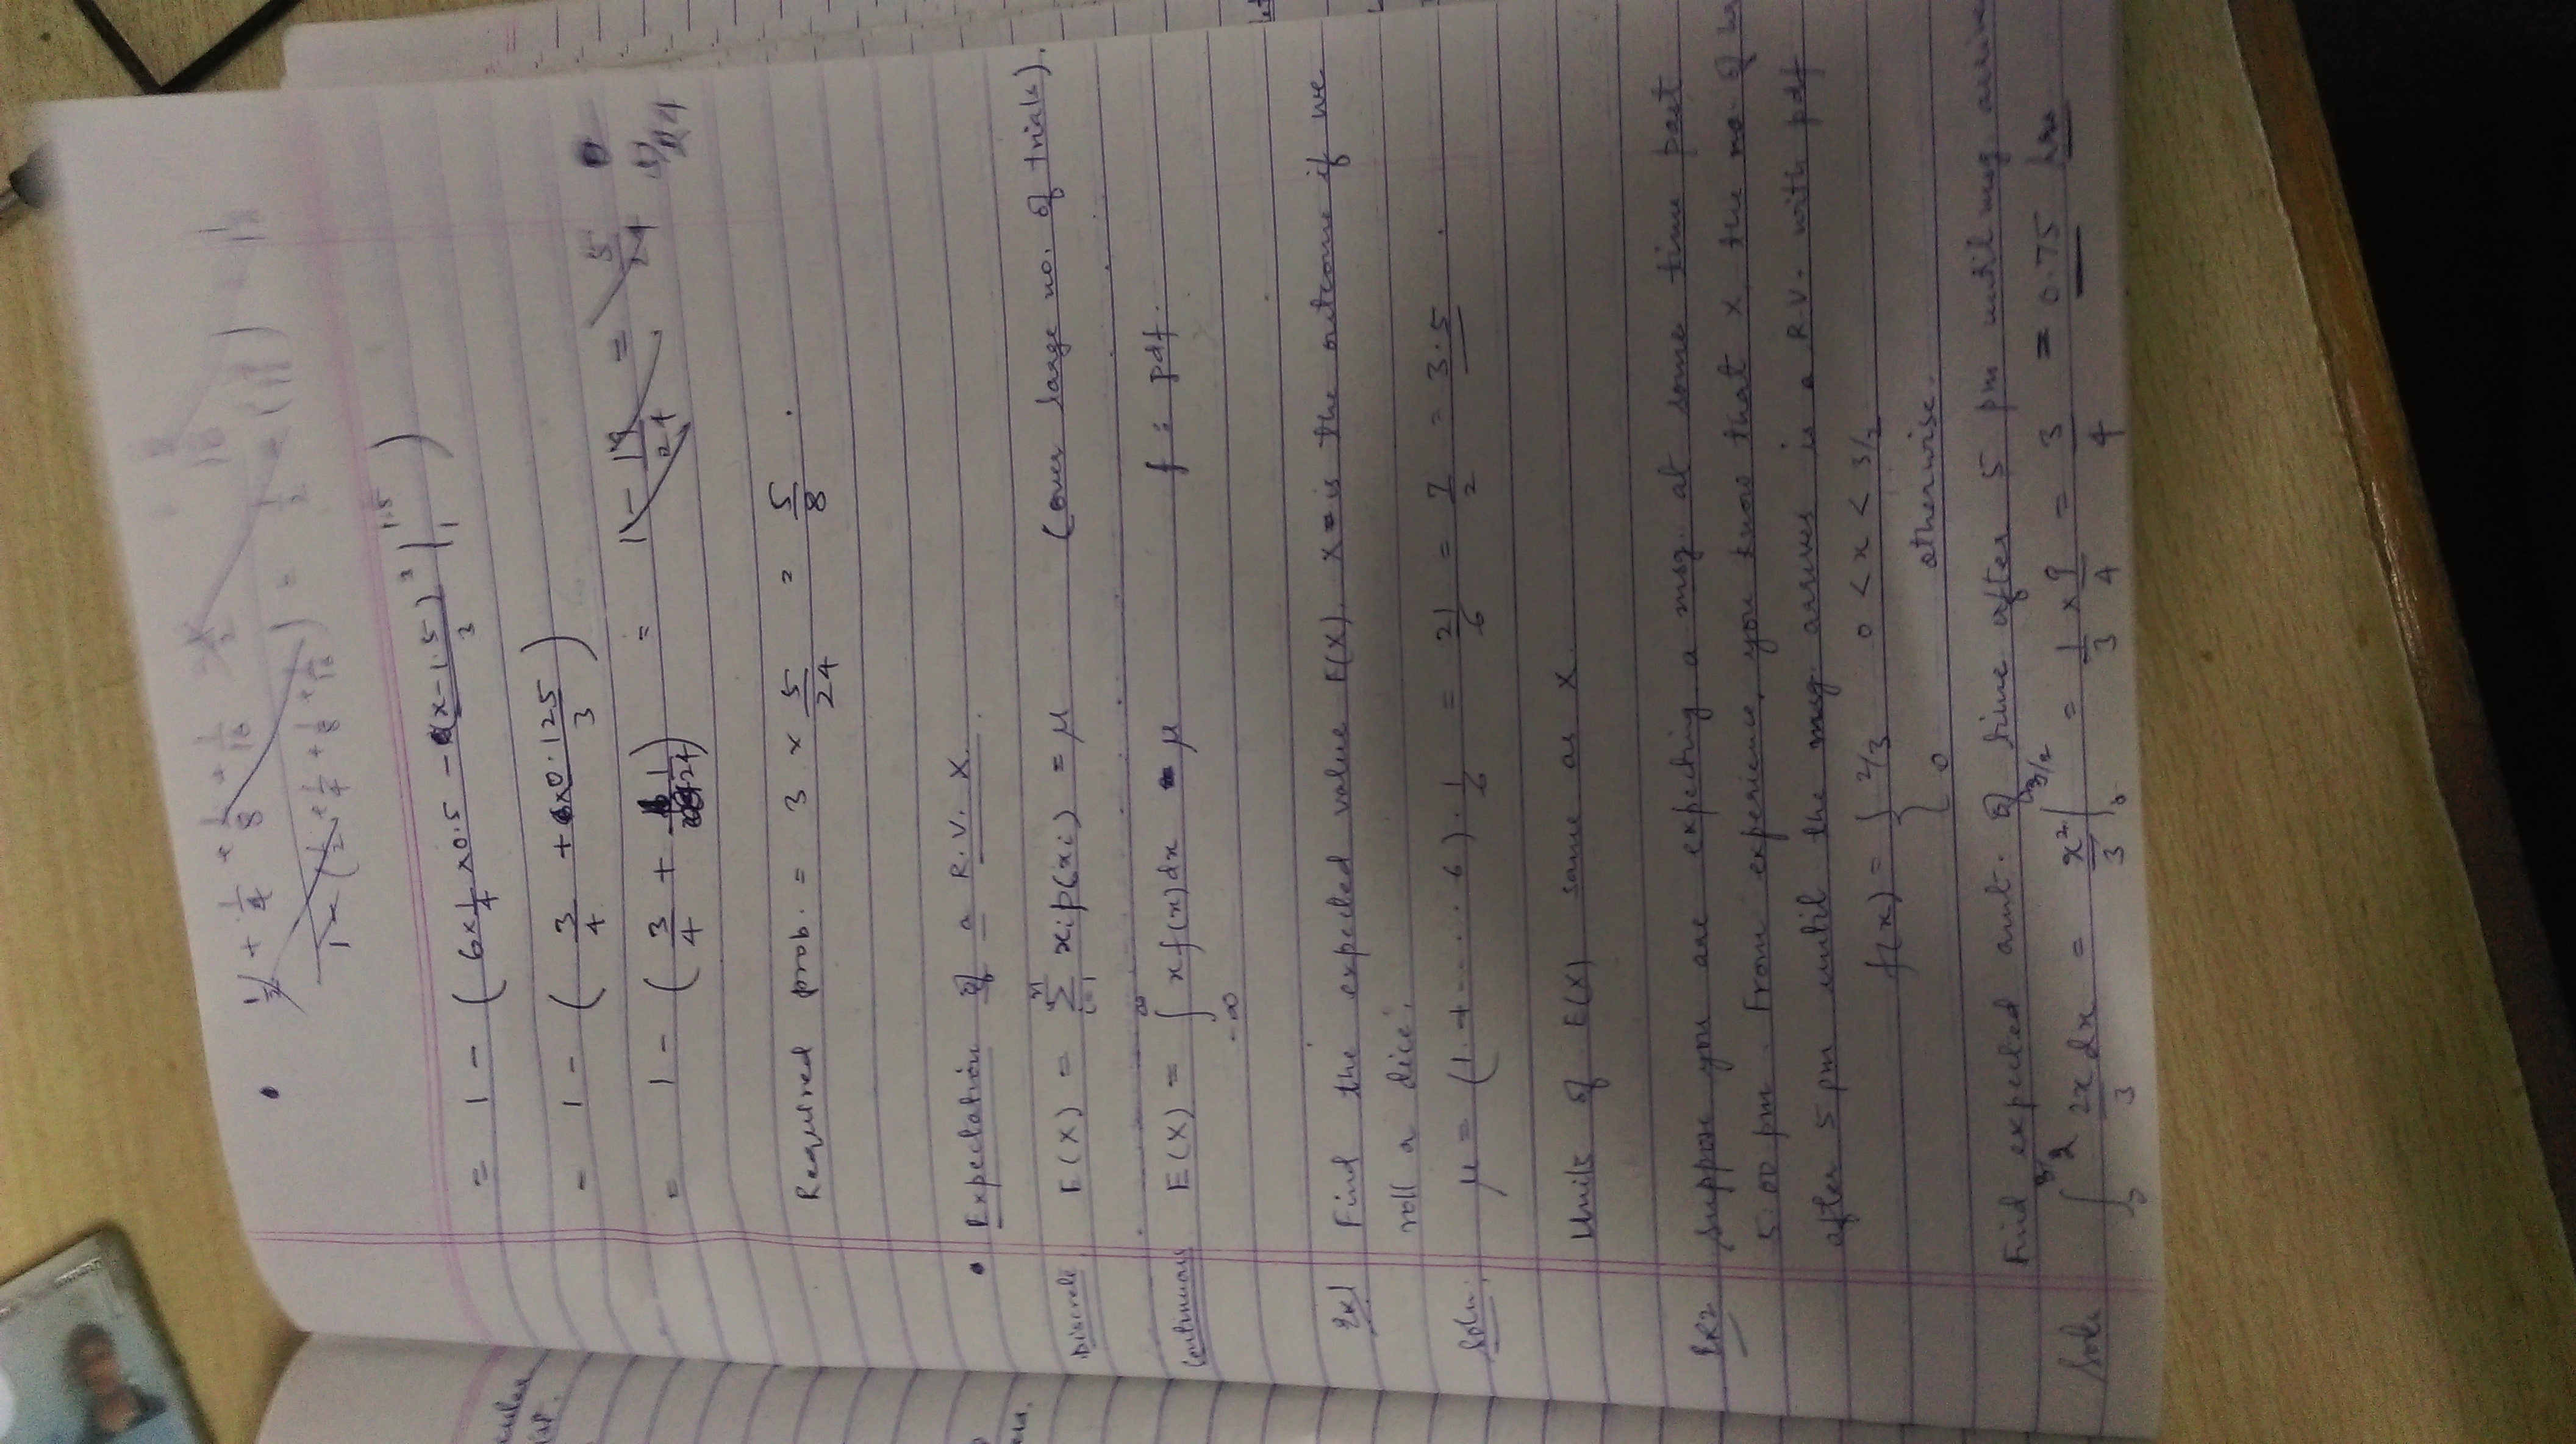 = 1 - ( 6 x 1/4 x 0.5 - (x-1.5)³/3 |₁^1.5 )
= 1 - ( 3/4 + 0.125/3 )
= 1 - ( 3/4 + 1/24 ) = 1 - 19/24 = 5/24
Required prob. = 3 x 5/24 = 5/8 .
• Expectation of a R.V. X.
Discrete E(X) = Σ_{i=1}^{n} xi p(xi) = μ (over large no. of trials).
Continuous E(X) = ∫_{-∞}^{∞} x f(x) dx = μ f : pdf.
Ex1 Find the expected value E(X), X is the outcome if we
roll a dice.
Soln. μ = (1 + . . . . . 6) . 1/6 = 21/6 = 7/2 = 3.5 .
Units of E(X) same as X.
Ex2 Suppose you are expecting a msg. at some time past
5.00 pm. From experience, you know that X the no. of hrs
after 5 pm until the msg. arrives is a R.V. with pdf
f(x) = { 2/3 0 < x < 3/2
{ 0 otherwise.
Find expected amt. of time after 5 pm until msg arrives
Soln ∫₀^{3/2} 2x dx/3 = x²/3 |₀^{3/2} = 1/3 x 9/4 = 3/4 = 0.75 hrs